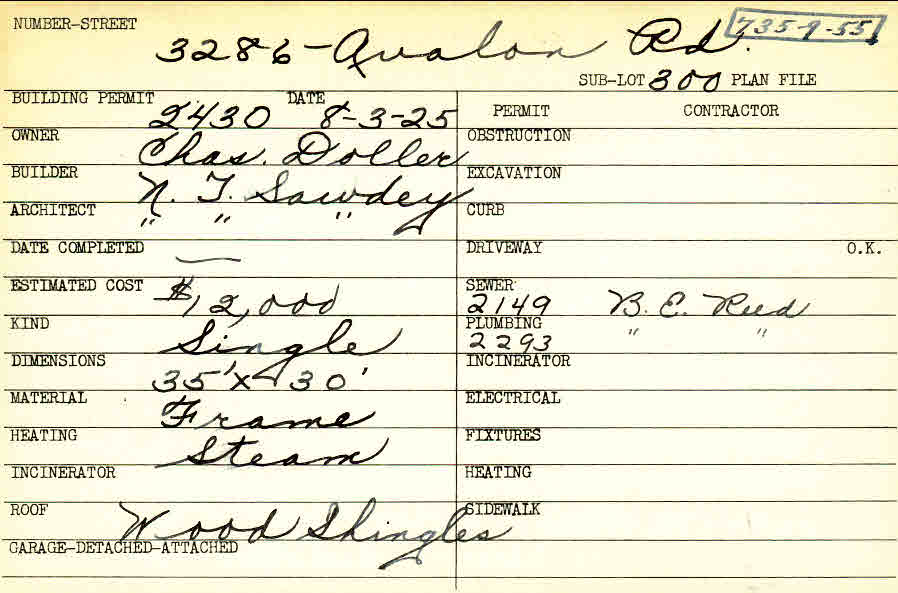 NUMBER-STREET 3286-Avalon Rd. 735-9-55
SUB-LOT 300 PLAN FILE
BUILDING PERMIT 2430 DATE 8-3-25 PERMIT CONTRACTOR
OWNER Chas. Doller OBSTRUCTION
BUILDER N. T. Sawdey EXCAVATION
ARCHITECT " " " CURB
DATE COMPLETED — DRIVEWAY O.K.
ESTIMATED COST $12,000 SEWER 2149 B. E. Reed
KIND Single PLUMBING 2293 " "
DIMENSIONS 35'x30' INCINERATOR
MATERIAL Frame ELECTRICAL
HEATING Steam FIXTURES
INCINERATOR HEATING
ROOF Wood Shingles SIDEWALK
GARAGE-DETACHED-ATTACHED